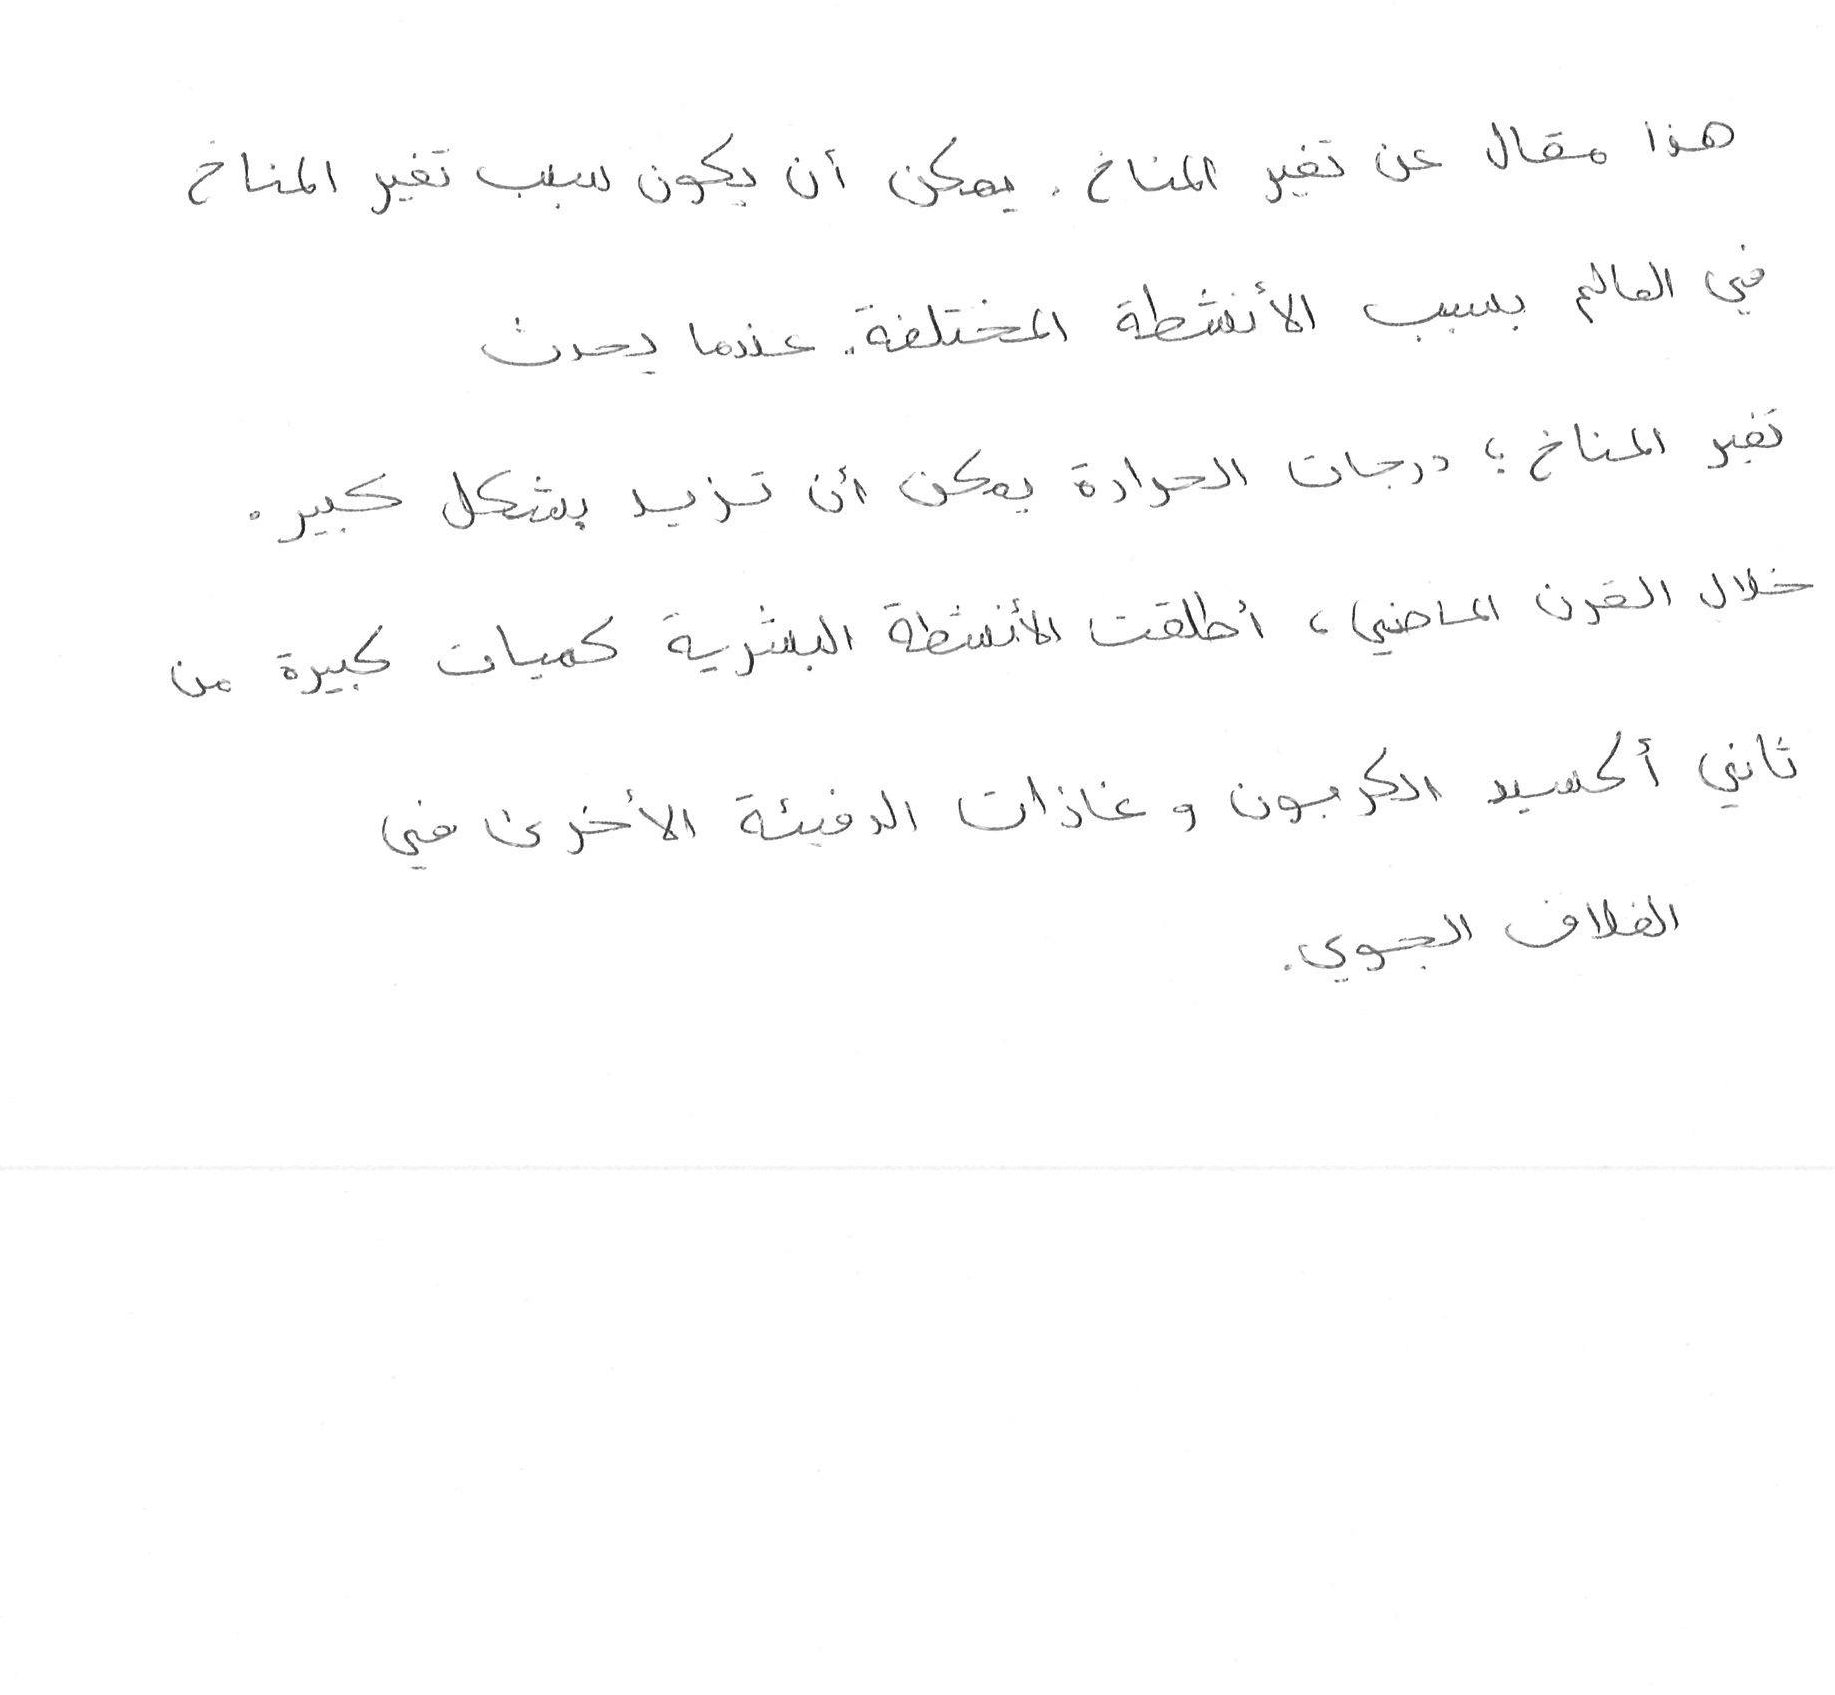 هذا مقال عن تغير المناخ. يمكن أن يكون سبب تغير المناخ
في العالم بسبب الأنشطة المختلفة. عندما يحدث
تغير المناخ؛ درجات الحرارة يمكن أن تزيد بشكل كبير.
خلال القرن الماضي، أطلقت الأنشطة البشرية كميات كبيرة من
ثاني أكسيد الكربون وغازات الدفيئة الأخرى في
الغلاف الجوي.